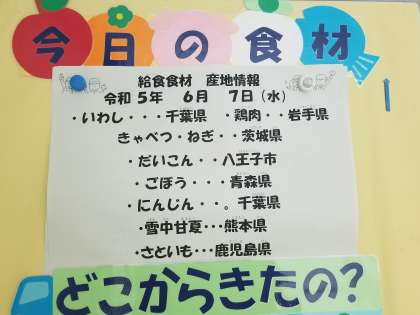 今日の食材
給食食材　産地情報
令和 5年　6月　7日（水）
・いわし・・・千葉県　・鶏肉・・岩手県
きゃべつ・ねぎ・・茨城県
・だいこん・・八王子市
・ごぼう・・・青森県
・にんじん・・。千葉県
・雪中甘夏…熊本県
・さといも…鹿児島県
どこからきたの？